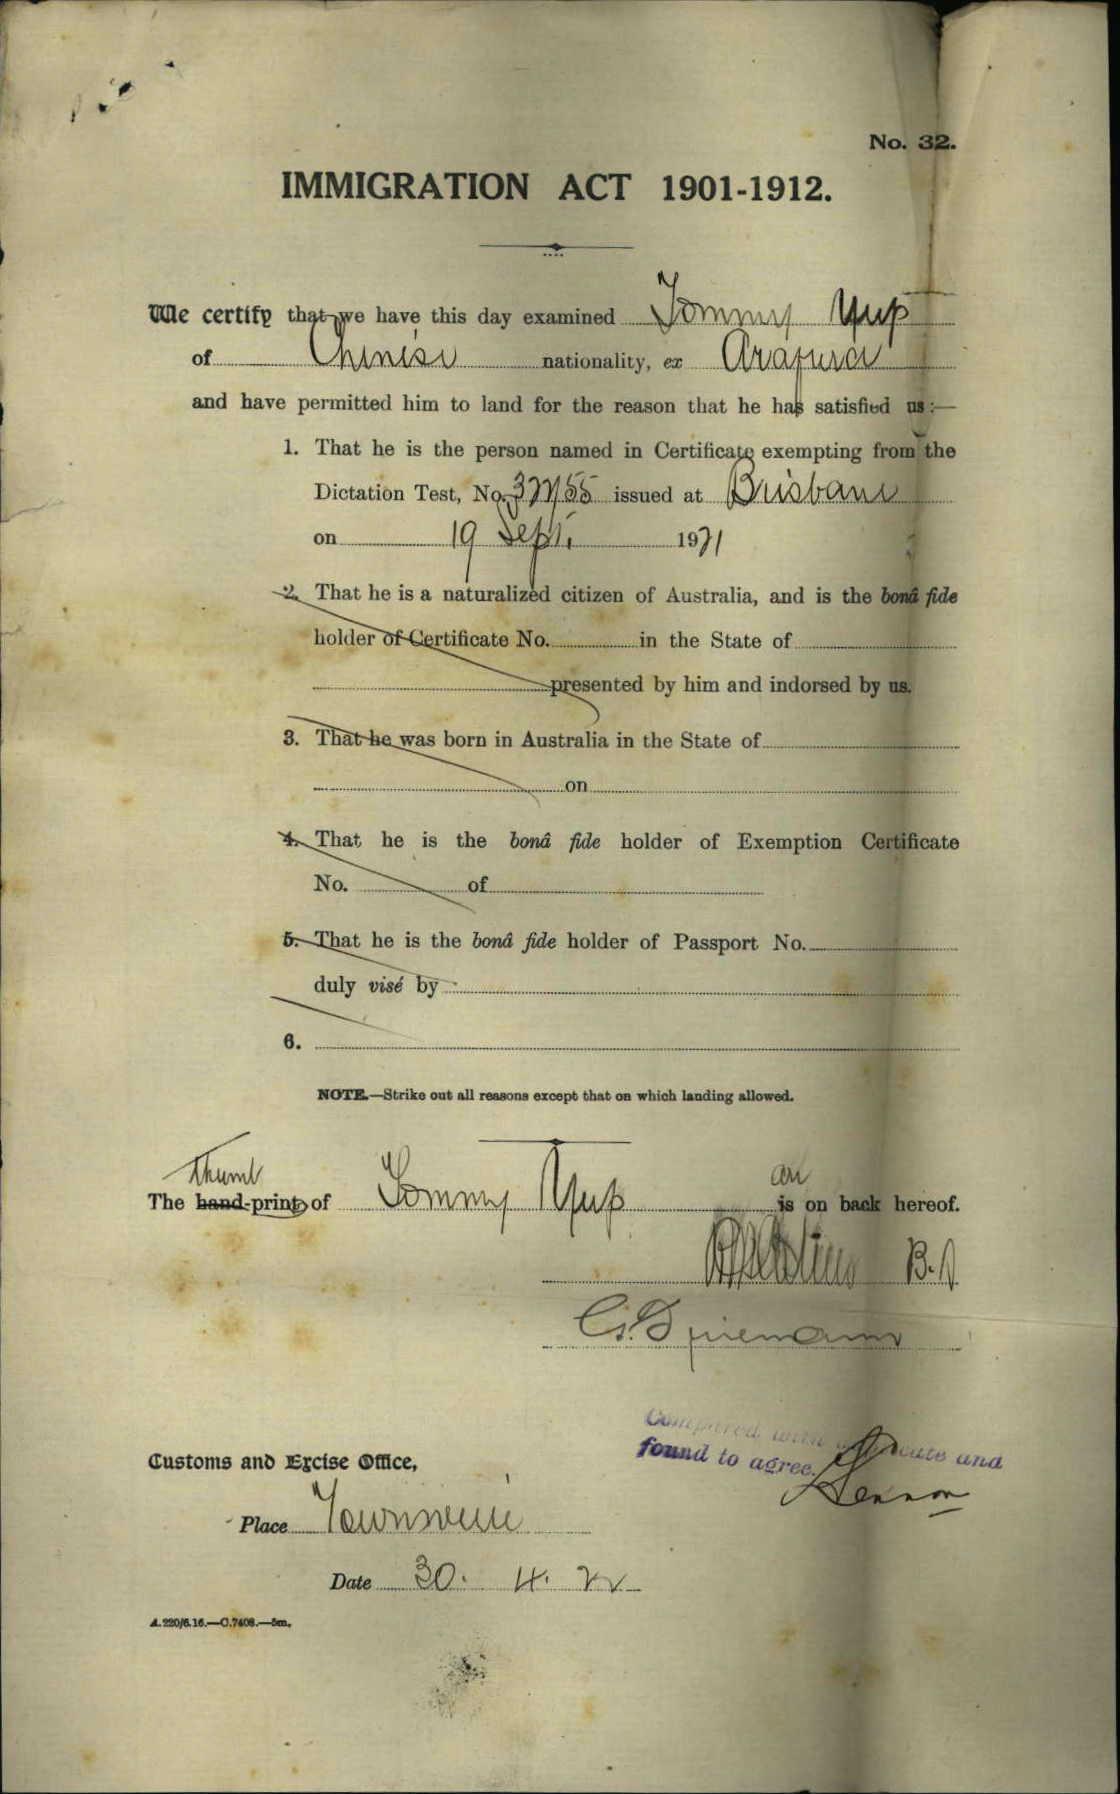 No. 32.
IMMIGRATION ACT 1901-1912.
We certify that we have this day examined Tommy Yup
of Chinese nationality, ex Arafura
and have permitted him to land for the reason that he has satisfied us:—
1. That he is the person named in Certificate exempting from the
Dictation Test, No. issued at Brisbane
on 19 Sept. 1921
2. That he is a naturalized citizen of Australia, and is the bonâ fide
holder of Certificate No. in the State of
presented by him and indorsed by us.
3. That he was born in Australia in the State of
on
4. That he is the bonâ fide holder of Exemption Certificate
No. of
5. That he is the bonâ fide holder of Passport No.
duly visé by
6.
NOTE.—Strike out all reasons except that on which landing allowed.
thumb are
The hand-prints of Tommy Yup is on back hereof.
Compared with and
found to agree.
Lennon
Customs and Excise Office,
Place Townsville
Date 30. 4. 22
A.220/6.16.—C.7408.—5m.